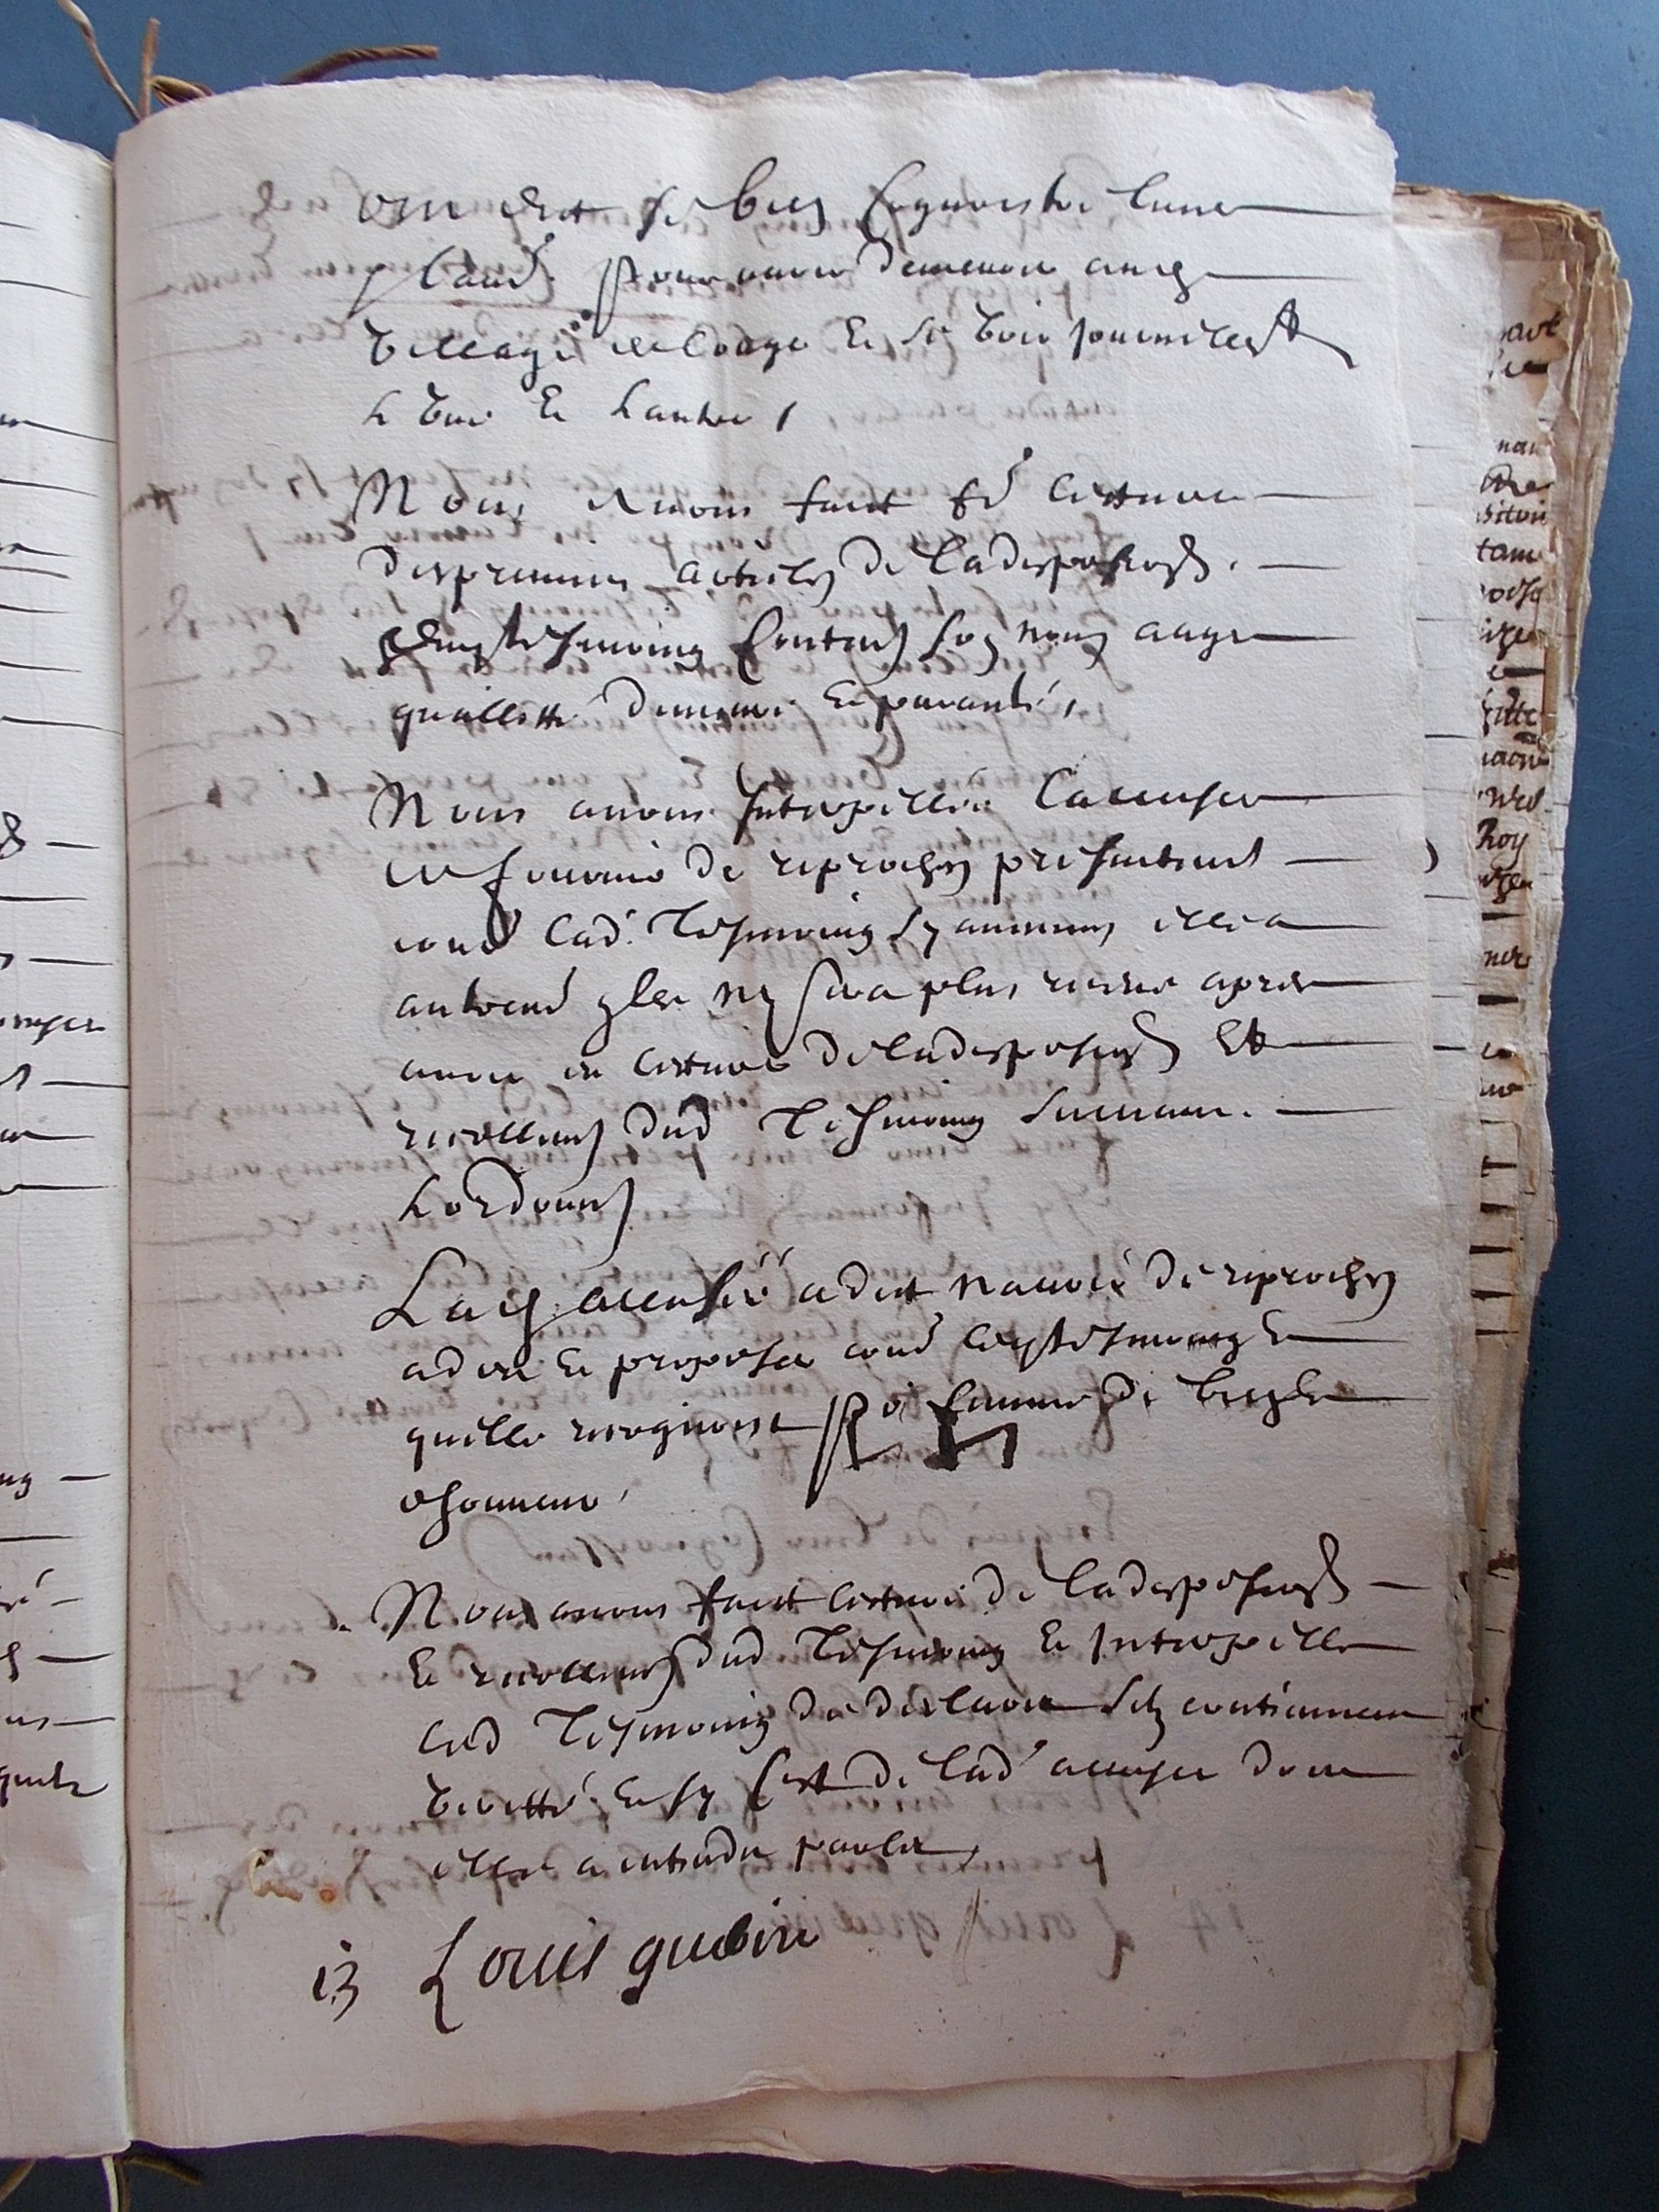 ont dit se bien cognoistre lune
lautre pour avoir demeuré au
village de et se voir journellemt
l'une et lautre /
Nous avons faict fe lecture
des premiers articles de la depposion
dud tesmoing contens son nom aage
quallitté demeure et paranté,
Nous avons interpellée laccusee
de fournir de reproches presentemt
contre lad. tesmoing sy aucuns elle a
autremt elle ny sera plus receue apres
avoir eu lecture de la depposion Et
recollemt dud tesmoing suivant
lordonnce
Lacq accusée a dit navoir de reproches
a dire et proposer contre tesmoing et
quelle recognoist po femme de bien et
dhonneur
Nous avons faict lecture de la depposion
et recollemt dud tesmoing et interpellé
lad tesmoing de declarer silz contiennent
veritté et sy cest de lad accusee dont
elle a entendu parler,
13 Louis guerin